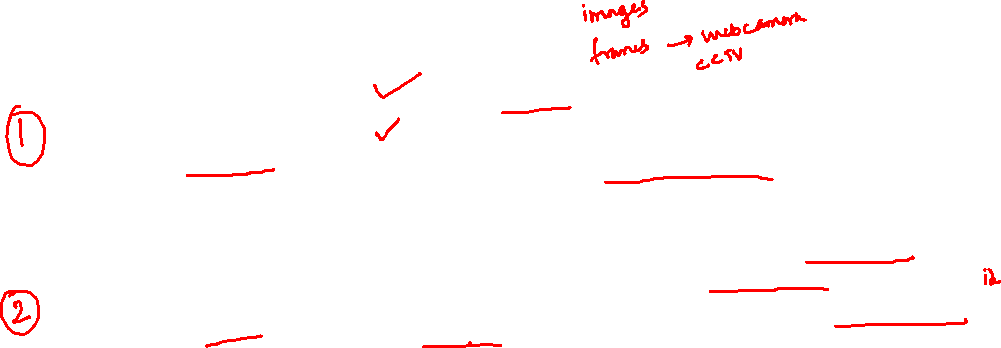 images
frames → webcamera
CCTV
1
2
i2